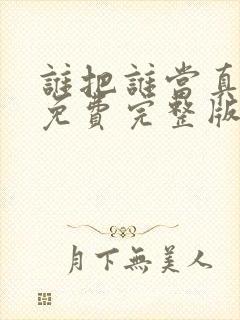 誰把誰當真
免費完整版
月下無美人